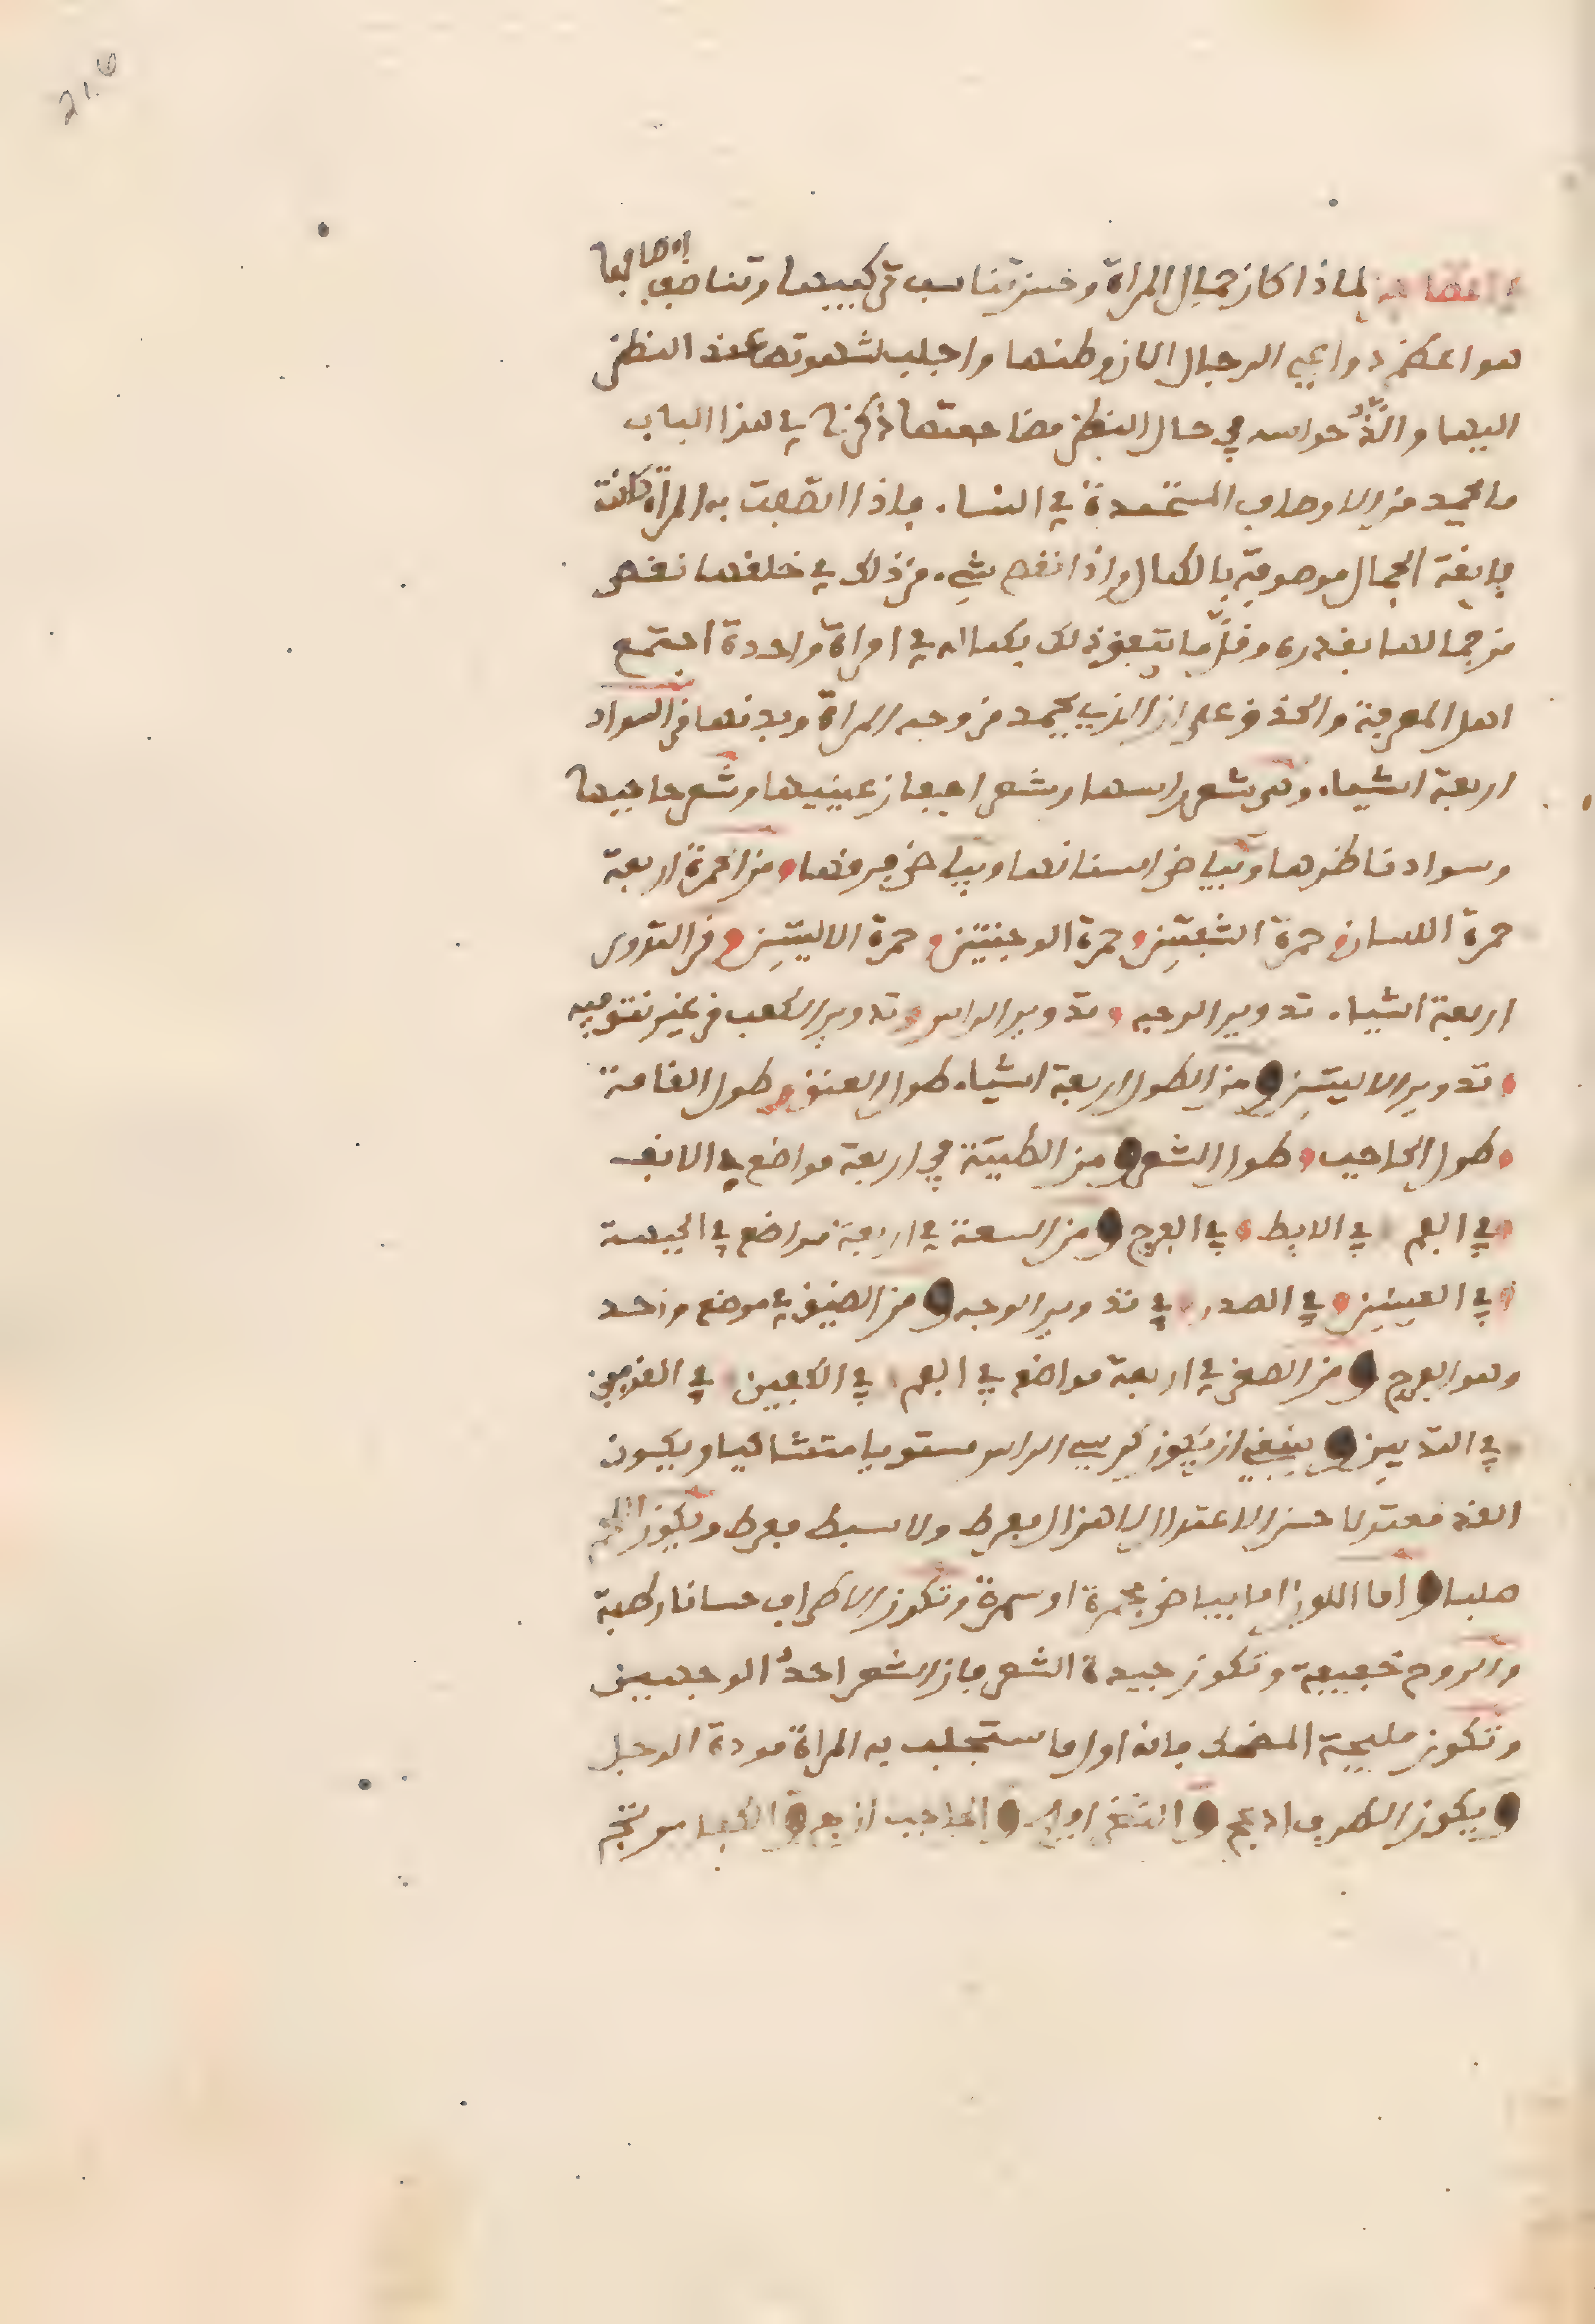 لماذا كان جمال المراة وحسن تناسب تركيبها وتناصف اوصافها
هو اعظم دواعي الرجال الى وطئها واجلب لشهوتها عند النظر
اليها والذ حواسه في حال النظر مضاجعتها ذكرنا في هذا الباب
ما يحمد من الاوصاف المستحمدة في النساء. فاذا اتصفت به المراة كانت
فايقة الجمال موصوفة بالكمال واذا نقص شيء من ذلك في خلقها نقص
من جمالها بقدره وقلما يتفق ذلك بكماله في امراة واحدة اجتمع
اهل المعرفة والحذق على ان الذي يحمد من وجه المراة وبدنها من السواد
اربعة اشياء. وهي شعر راسها وشعر اجفان عينيها وشعر حاجبيها
وسواد ناظرها وبياض اسنانها وبياض فرقها ومن الحمرة اربعة
حمرة اللسان حمرة الشفتين حمرة الوجنتين حمرة الاليتين ومن التدوير
اربعة اشياء. تدوير الوجه تدوير الراس تدوير الكعب من غير نتو فيه
تدوير الاليتين ومن الطول اربعة اشياء. طول العنق وطول القامة
طول الحاجب طول الشعر ومن الطيبة في اربعة مواضع في الانف
في الفم في الابط في الفرج ومن السعة في اربعة مواضع في الجبهة
في العينين في الصدر في تدوير الوجه ومن الضيق في موضع واحد
وهو الفرج ومن الصغر في اربعة مواضع في الفم في الكفين في القدمين
في الثديين وينبغي ان يكون كرسي الراس مستويا متشاكيا ويكون
القد معتدلا حسن الاعتدال لا هزال مفرط ولا سبط مفرط ويكون اللحم
صلبا واما اللون اما بياض بحمرة او سمرة وتكون الاطراف حسانا رطبة
والروح خفيفة وتكون جيدة الشعر فان الشعر احد الوجهين
وتكون مليحة المضحك فانه اول ما ستجلب به المراة مودة الرجل
ويكون الطرف ادعج و والحاجب ازج و